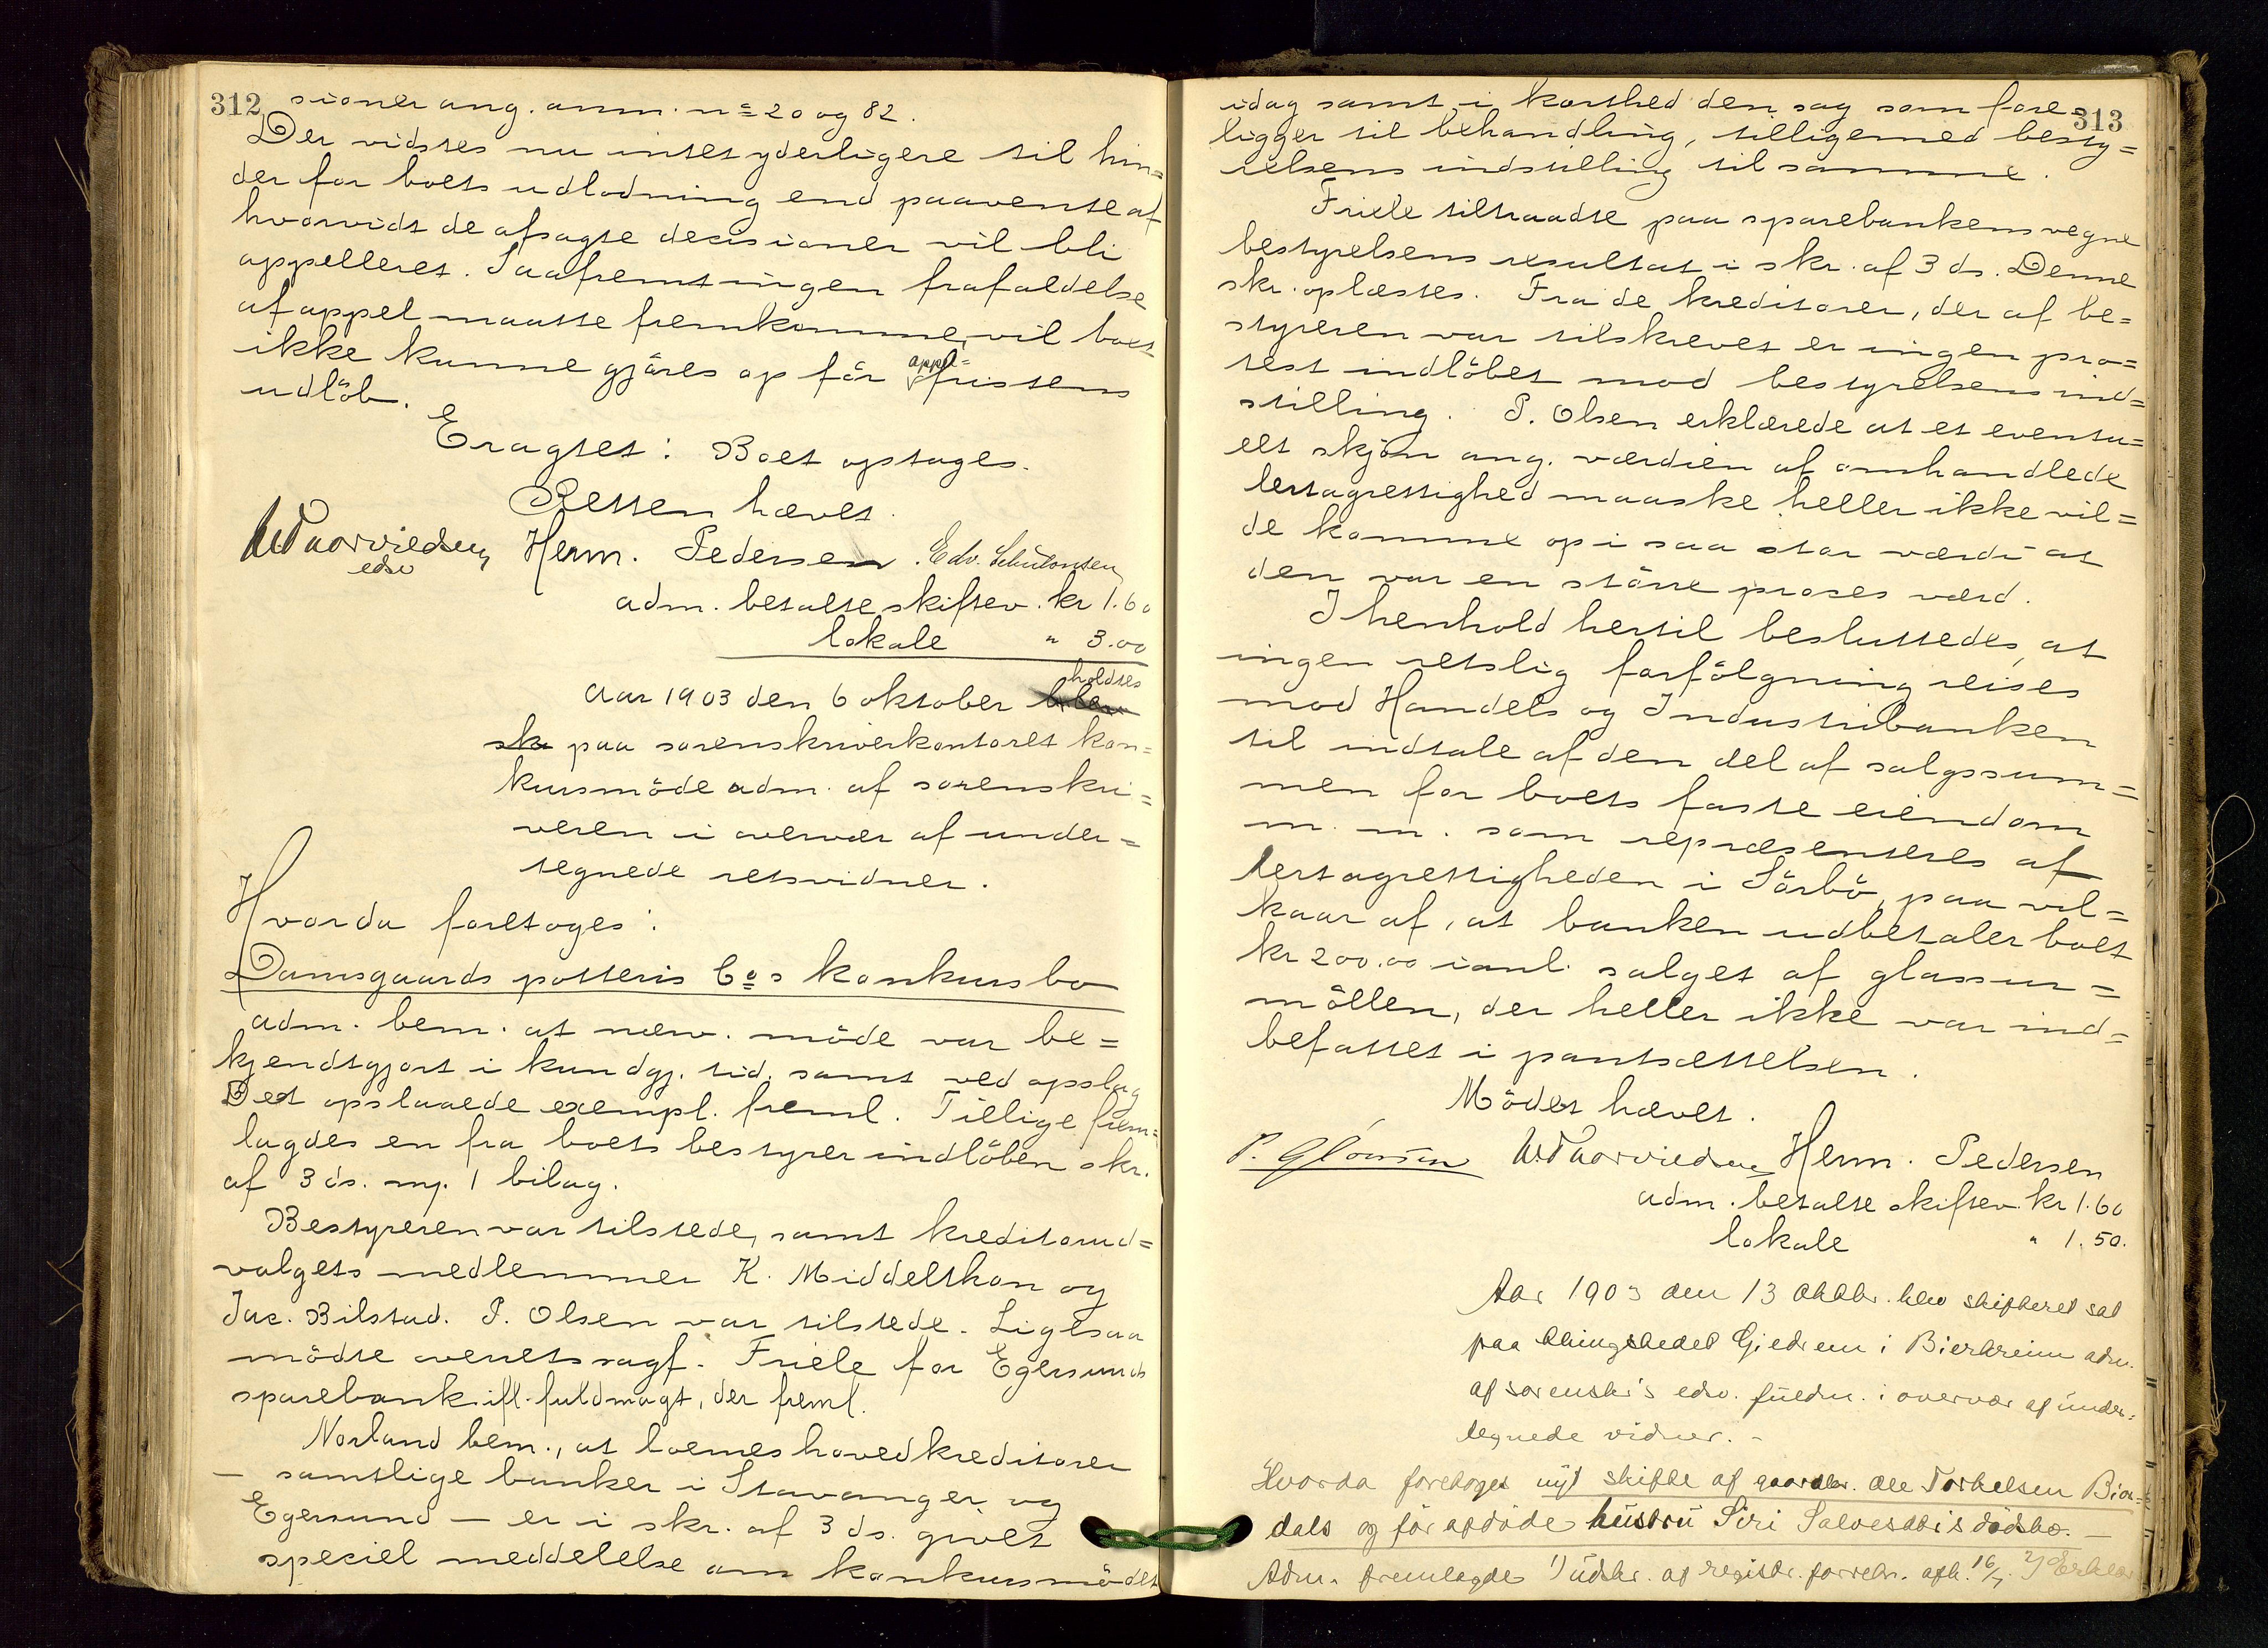 312
sioner ang. anm. no 20 og 82.
Der vidstes nu intet yderligere til hin=
der for boets udlodning end paavente af
hvorvidt de afsagte decisioner vil bli
appelleret. Saafremt ingen frafaldelse
af appel maatte fremkomme, vil boet
ikke kunne gjöres op för appel= fristens
udlöb.
Eragtet: Boet optages.
Retten hævet.
Herm. Pedersen
edsv
adm. betalte skiftev. kr 1.60
lokale " 3.00
Aar 1903 den 6 oktober holdtes
paa sorenskriverkontoret kon=
kursmöde adm. af sorenskri=
veren i overvær af under=
tegnede retsvidner.
Hvorda foretoges:
Damsgaards potteris Cos konkursbo
adm. bem. at nærv. möde var be=
kjendtgjort i kundgj. tid. samt ved opslag
Det opslaaede exempl. freml. Tillige frem=
lagdes en fra boets bestyrer indlöben skr.
af 3 ds. m. 1 bilag.
Bestyreren var tilstede, samt kreditorud=
valgets medlemmer K. Middelthon og
Jac. Bilstad. P. Olsen var tilstede. Ligesaa
mödte overretssagf. Friele for Egersunds
sparebank ifl. fuldmagt, der freml.
Norland bem., at boernes hovedkreditorer
– samtlige banker i Stavanger og
Egersund – er i skr. af 3 ds. givet
speciel meddelelse om konkursmödet
313
idag samt i korthed den sag som fore=
ligger til behandling, tilligemed besty=
relsens indstilling til samme.
Friele tiltraadte paa sparebankens vegne
bestyrelsens resultat i skr. af 3 ds. Denne
skr. oplæstes. Fra de kreditorer, der af be=
styreren var tilskrevet er ingen pro=
test indlöbet mod bestyrelsens ind=
stilling. P. Olsen erklærede at et eventu=
elt skjön ang. værdien af omhandlede
lertagrettighed maaske heller ikke vil=
de komme op i saa stor værdi at
den var en större proces værd.
I henhold hertil besluttedes, at
ingen retslig forfölgning reises
mod Handels og Industribanken
til indtale af den del af salgssum=
men for boets faste eiendom
m. m. som repræsenteres af
lertagrettigheden i Sörbö, paa vil=
kaar af, at banken udbetaler boet
kr 200.00 i anl. salget af glassur=
möllen, der heller ikke var ind=
befattet i pantsættelsen.
Mödet hævet.
Herm. Pedersen
adm. betalte skiftev. kr 1.60
lokale " 1.50.
Aar 1903 den 13 oktbr. blev skifteret sat
paa thingstedet Gjedrem i Bierkreim adm.
af sorenskr's edsv. fuldm. i overvær af under=
tegnede vidner. –
Hvorda foretoges nyt skifte af gaardbr. Ole Torkelsen Bior=
dals og för afdöde hustru Siri Salvesdtrs dödsbo. –
Adm. fremlagde 1) udskr. af registr. forretn. afh. 16/7. 2) Erklær